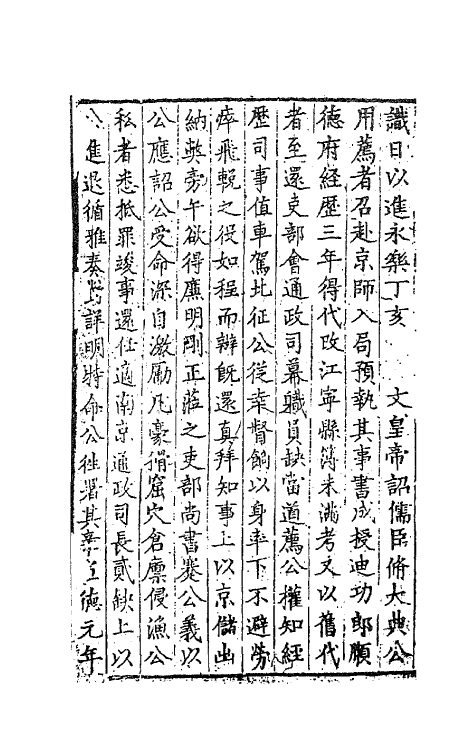 識日以進永樂丁亥　　文皇帝詔儒臣脩大典公
用薦者召赴京師入局預執其事書成授迪功郎順
德府經歷三年得代改江寧縣簿未滿考又以舊代
者至還吏部會通政司幕職員缺當道薦公權知經
歷司事值車駕北征公從棄督餉以身率下不避勞
瘁飛輓之役如程而辦旣還真拜知事上以京儲出
納獘旁午欲得廉明剛正蒞之吏部尚書蹇公義以
公應詔公受命深自激勵凡豪猾窟穴倉廪侵漁公
私者悉抵罪竣事還任適南京通政司長貳缺上以
公進退循雅奏對詳明特命公往署其事宣德元年